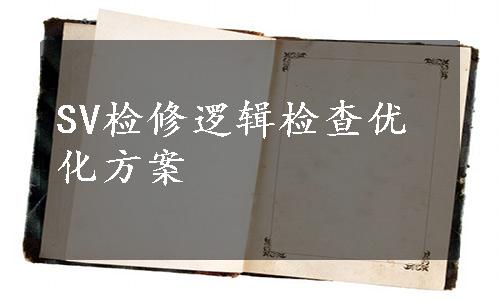 SV检修逻辑检查优
化方案